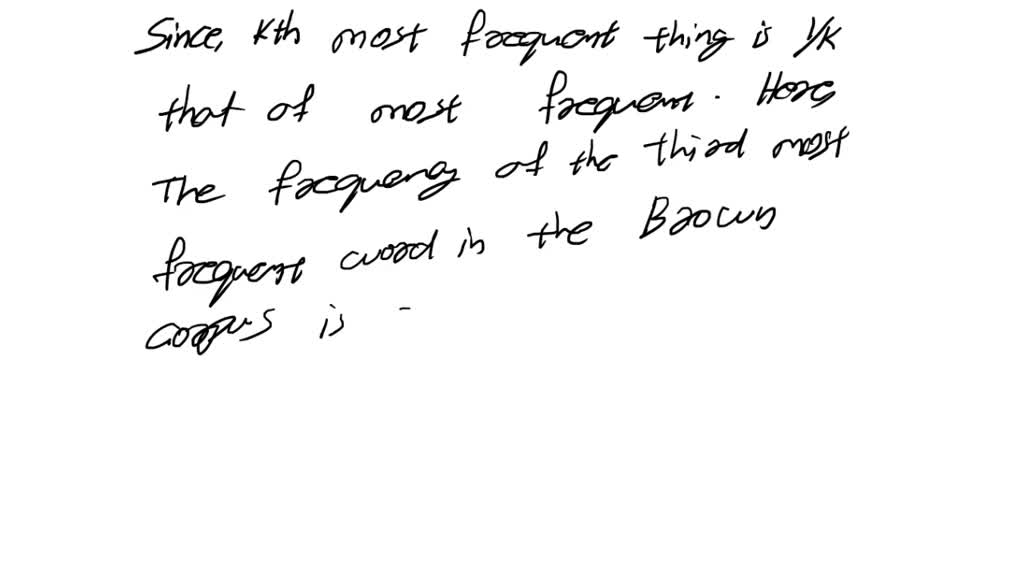 Since, Kth most frequent thing is 1/K
that of most frequent. Here,
The frequency of the third most
frequent word in the Brown
corpus is -